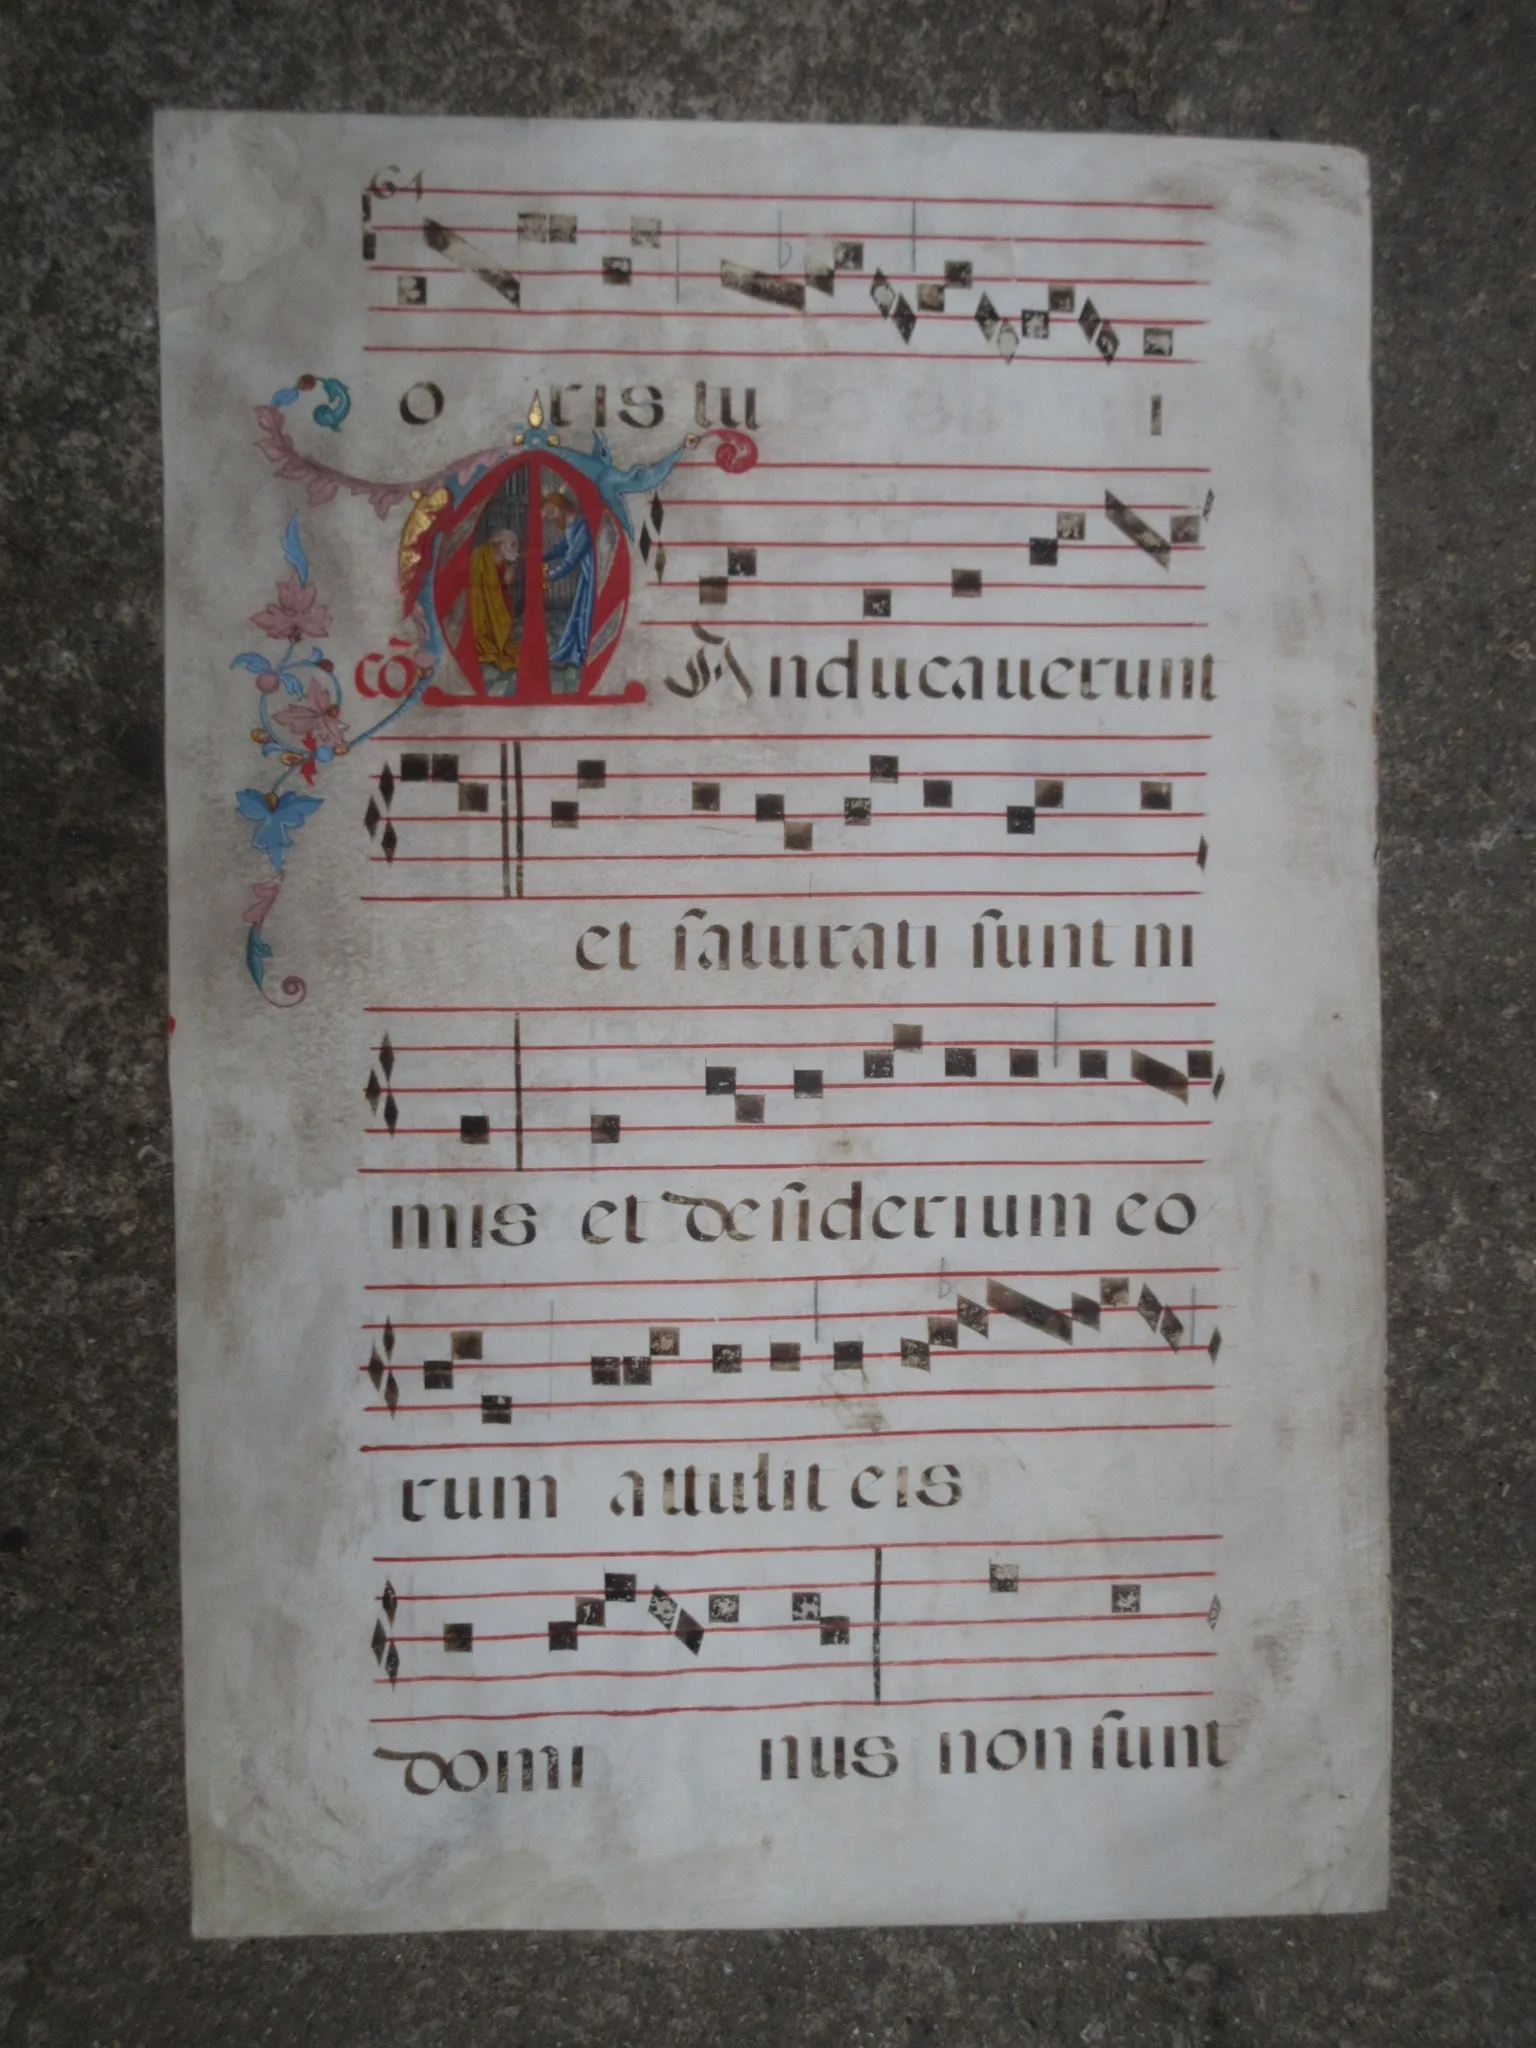 64
o ris tu i
cõ MAnducauerunt
et ſaturati ſunt ni
mis et deſiderium eo
rum attulit eis
domi nus non ſunt